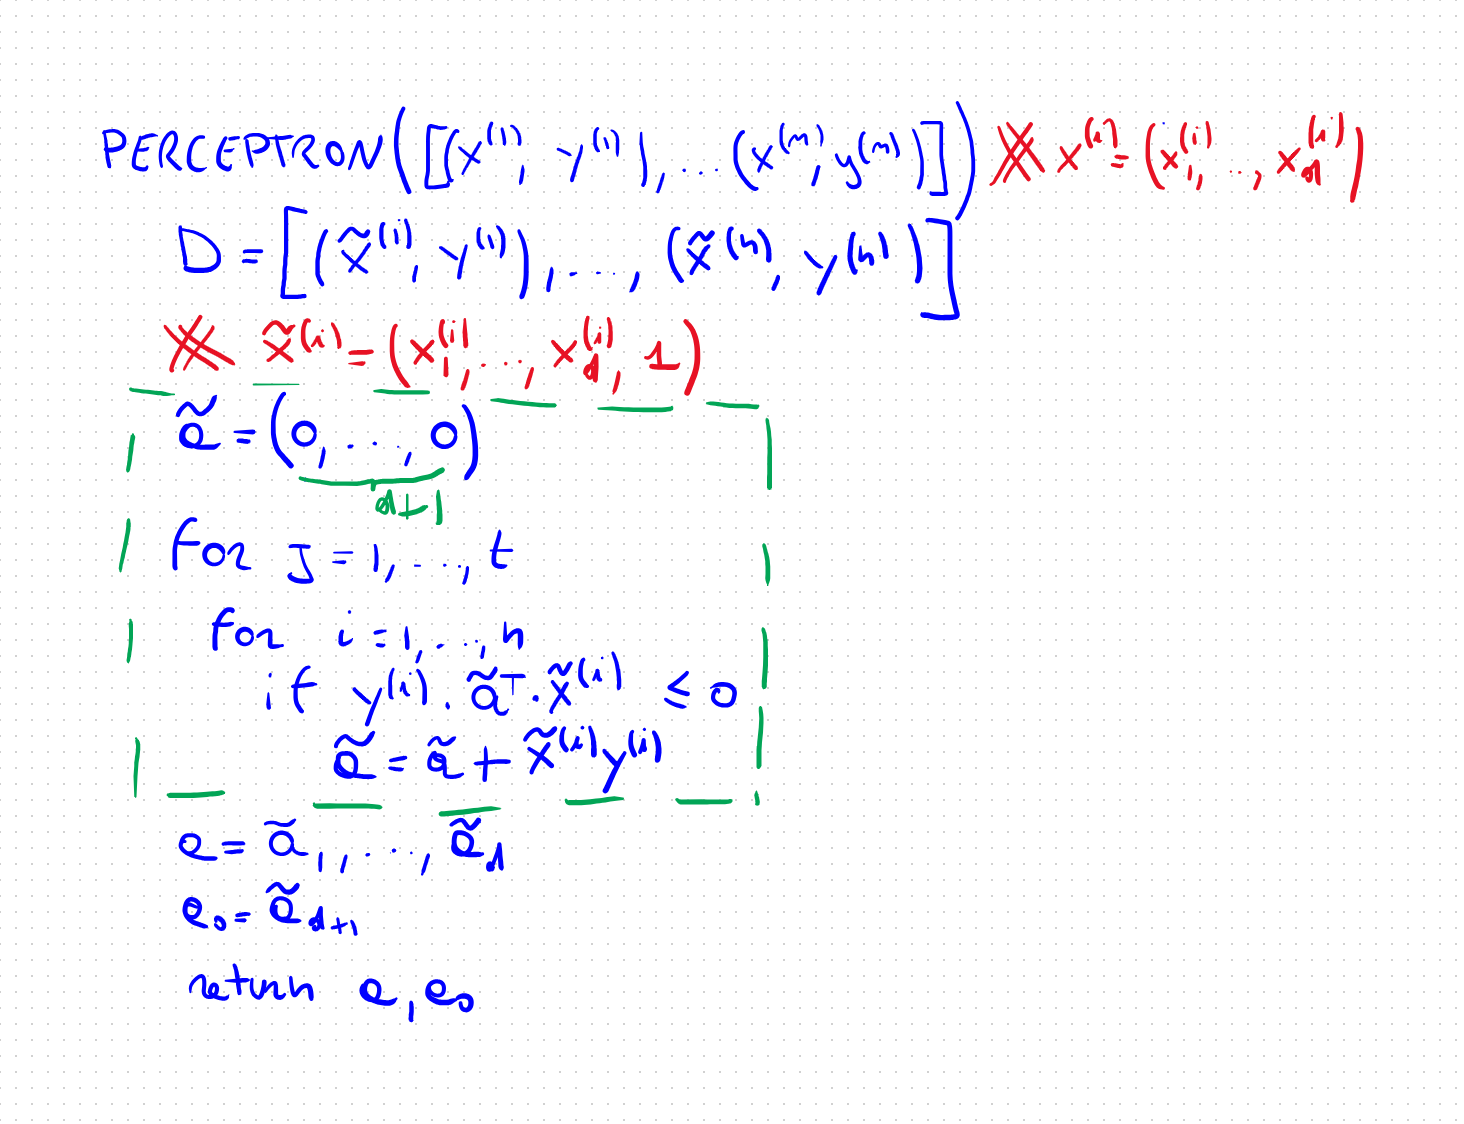 PERCEPTRON([(x^(1), y^(1)), ... (x^(n), y^(n))]) # x^(i) = (x_1^(i), ..., x_d^(i))
D = [(x̃^(1), y^(1)), ..., (x̃^(n), y^(n))]
# x̃^(i) = (x_1^(i), ..., x_d^(i), 1)
ã = (0, ..., 0)
d+1
for J = 1, ..., t
for i = 1, ..., n
if y^(i) · ã^T · x̃^(i) ≤ 0
ã = ã + x̃^(i) y^(i)
a = ã_1, ..., ã_d
a_0 = ã_d+1
return a, a_0